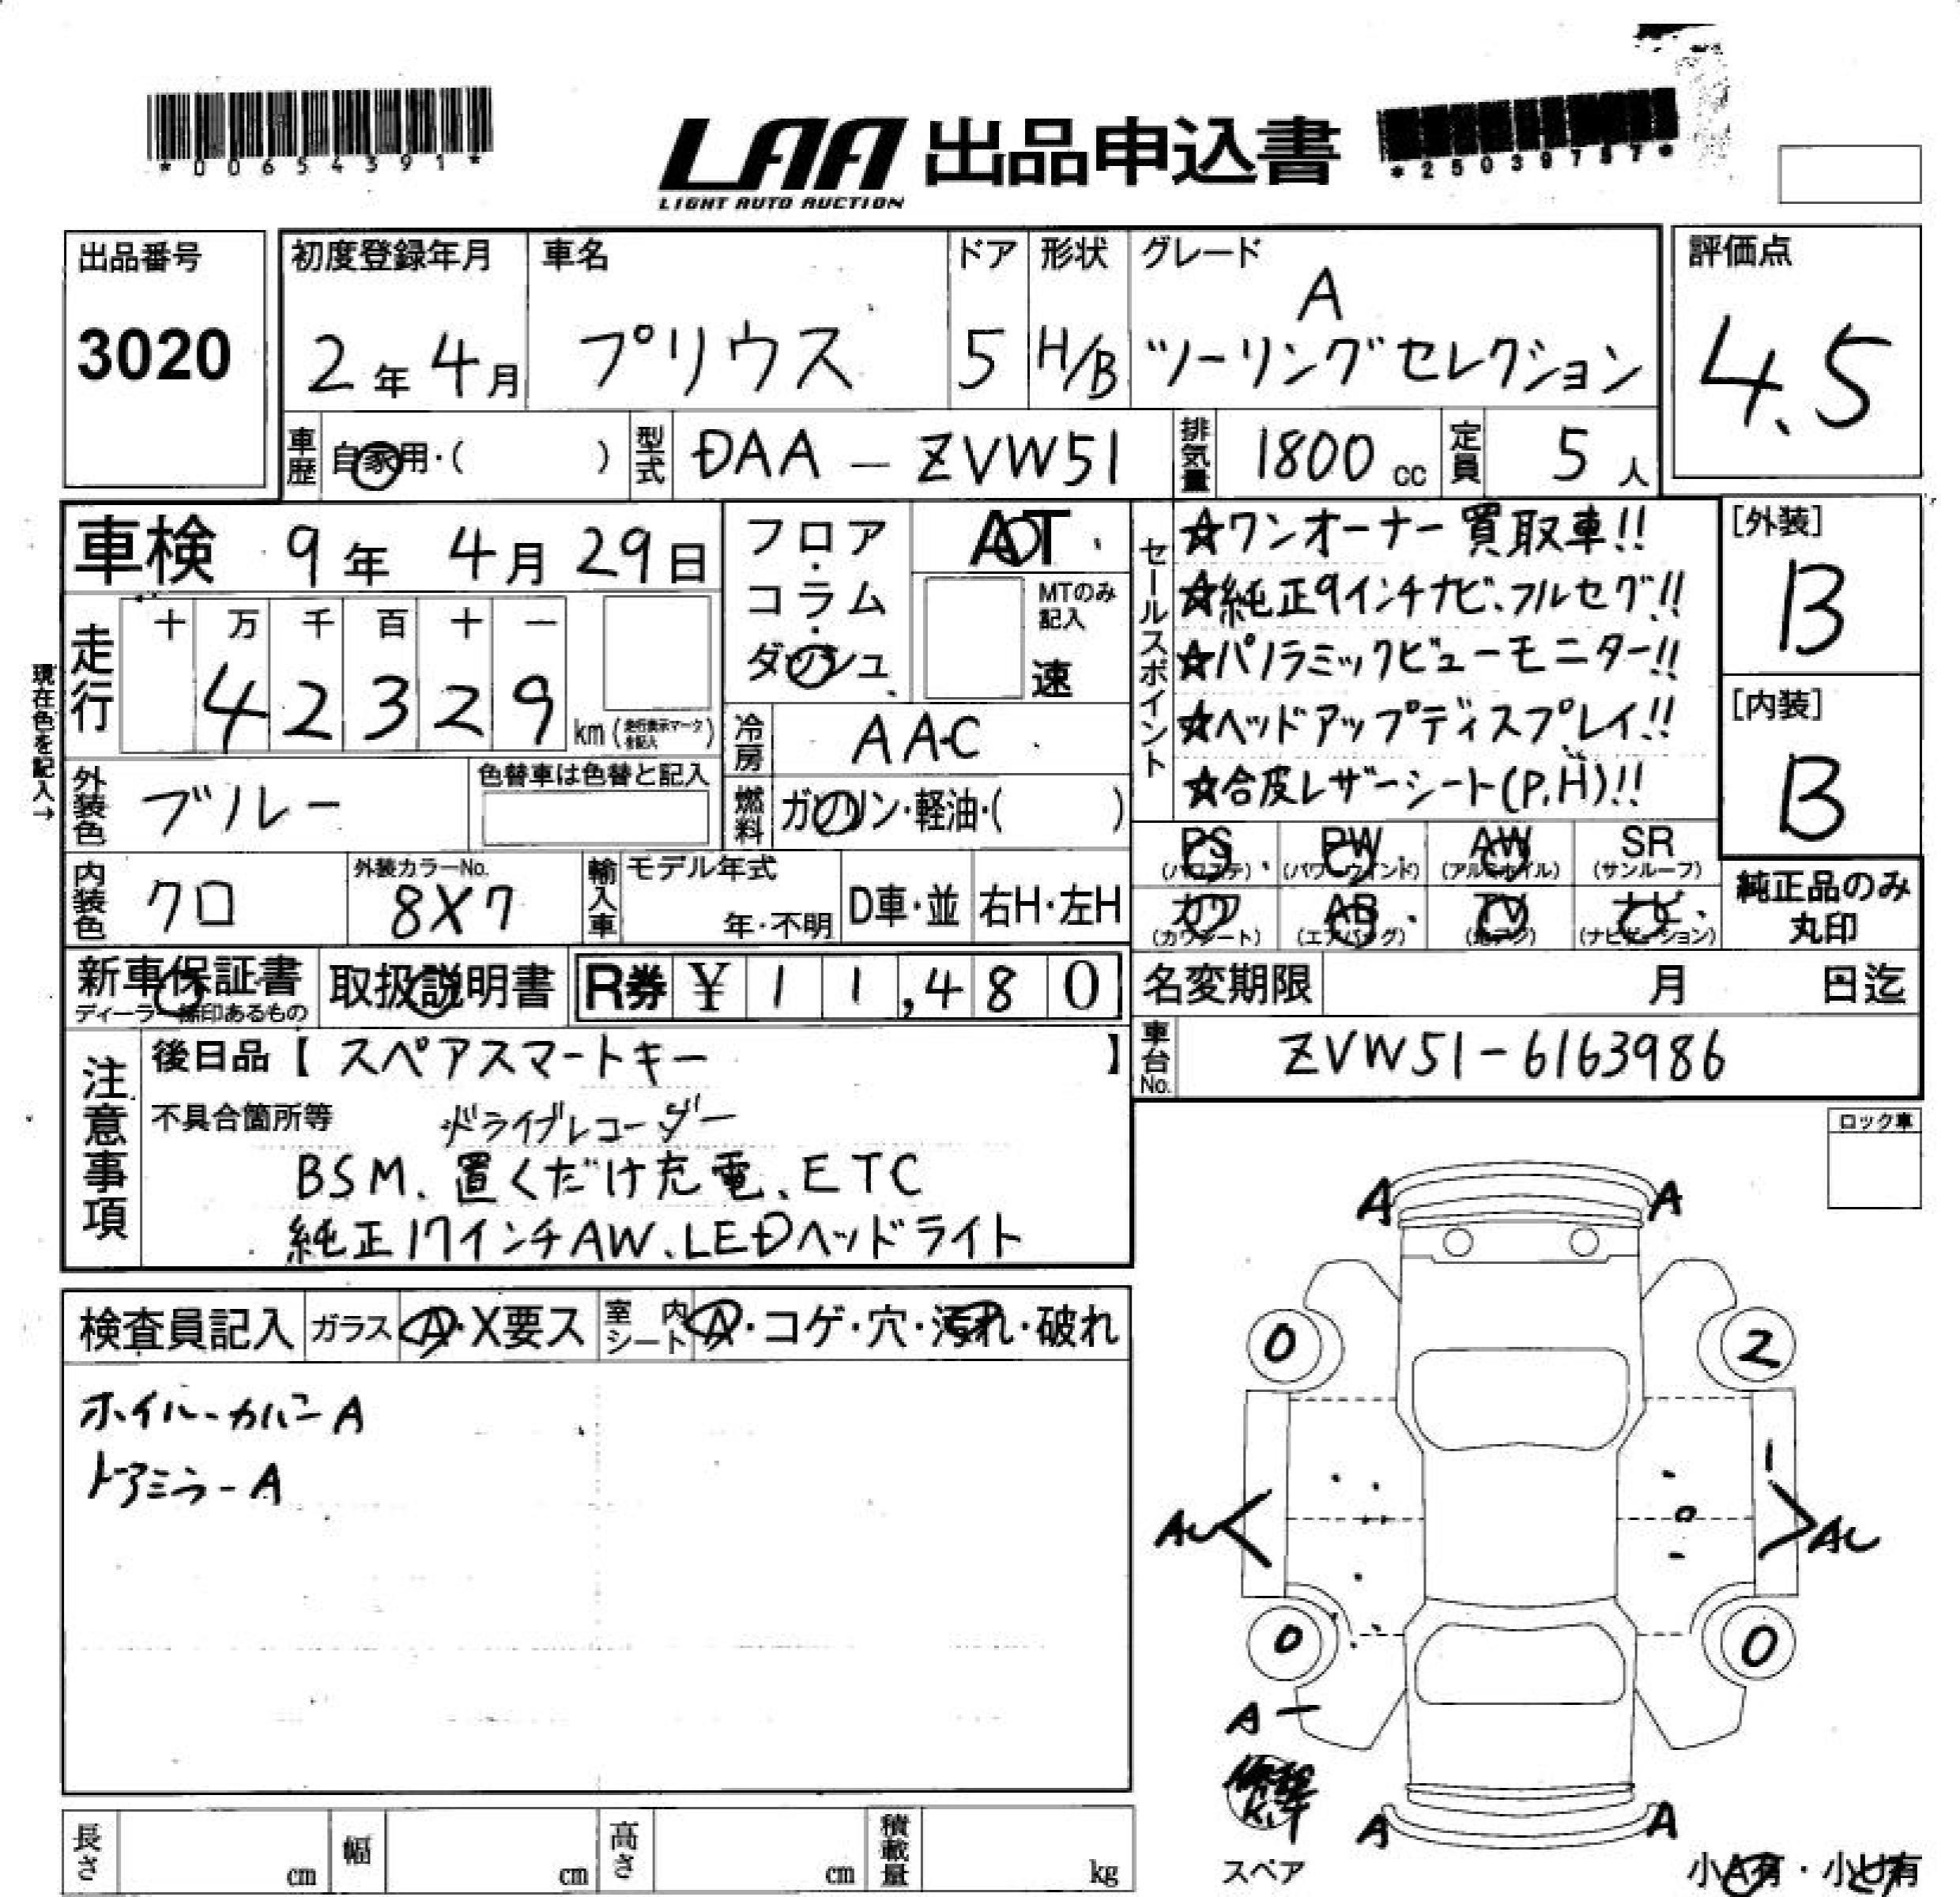 *00654391*
LAA 出品申込書
LIGHT AUTO AUCTION
*25039757*
出品番号
3020
初度登録年月
2年4月
車名
プリウス
ドア
5
形状
H/B
グレード
A
ツーリングセレクション
評価点
4.5
車歴
自家用・( )
型式
DAA-ZVW51
排気量
1800cc
定員
5人
車検 9年 4月 29日
現在色を記入→
走行
十 万 千 百 十 一
4 2 3 2 9
km(走行表示マーク
を記入)
外装色
ブルー
色替車は色替と記入
フロア・コラム・ダッシュ
AT
MTのみ
記入
速
冷房
AAC
燃料
ガソリン・軽油・( )
セールスポイント
☆ワンオーナー買取車!!
☆純正9インチナビ、フルセグ!!
☆パノラミックビューモニター!!
☆ヘッドアップディスプレイ!!
☆合皮レザーシート(P,H)!!
[外装]
B
[内装]
B
内装色
クロ
外装カラーNo.
8X7
輸入車
モデル年式
年・不明
D車・並
右H・左H
PS
(パワステ)
PW
(パワーウインド)
AW
(アルミホイル)
SR
(サンルーフ)
カワ
(カワシート)
AB
(エアバッグ)
TV
(地デジ)
ナビ
(ナビゲーション)
純正品のみ
丸印
新車保証書
ディーラー捺印あるもの
取扱説明書
R券 ¥11,480
名変期限 月 日迄
車台No.
ZVW51-6163986
注意事項
後日品【スペアスマートキー】
不具合箇所等 ドライブレコーダー
BSM、置くだけ充電、ETC
純正17インチAW、LEDヘッドライト
ロック車
検査員記入
ガラス
A・X要ス
室内シート
A・コゲ・穴・汚れ・破れ
ホイルーカバーA
ドアミラーA
A A
0 2
1
AU AU
0 0
A
A A
スペア
小A有・小U有
長さ cm
幅 cm
高さ cm
積載量 kg